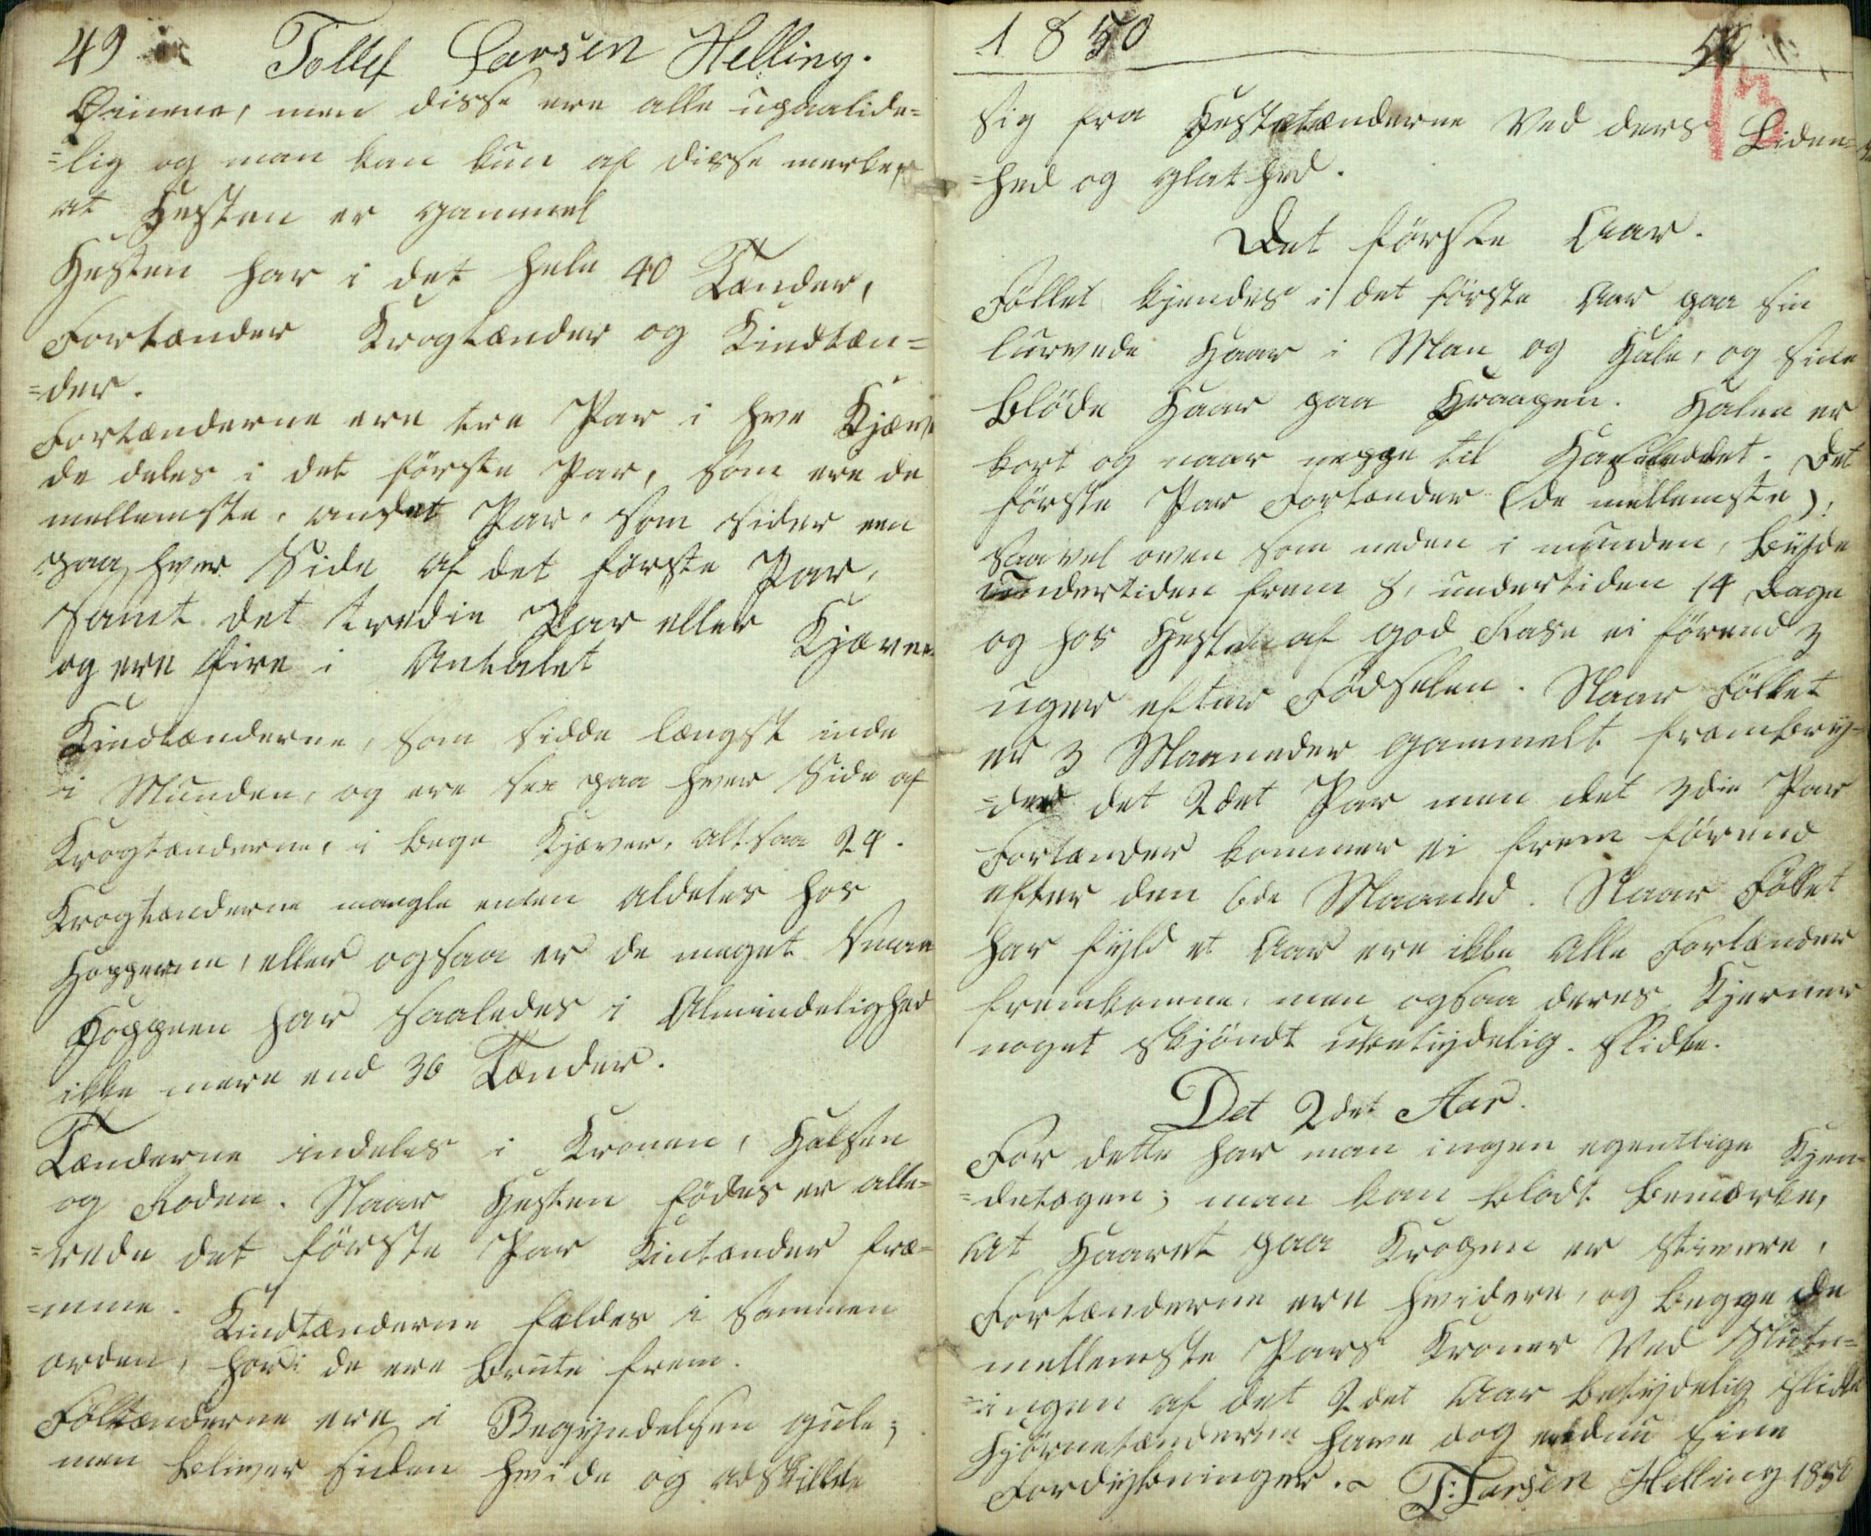 49 Tollef Larsen Helling.
Øinene, men disse ere alle upaalide=
=lig og man kan kun af disse merke,
at Hesten er gammel
Hesten har i det hele 40 Tænder,
Fortænder Krogtænder og Kindtæn=
=der.
Fortænderne ere tre Par i hve Kjæve
de deles i det første Par, som ere de
mellemste, andet Par, som sider een
paa hver Side af det første Par,
samt det tredie Par eller
og ere fire i Antalet Kjæver
Kindtænderne, som sidde længst inde
i Munden, og ere sex paa hver Side af
Krogtænderne, i bege Kjæver, altsaa 24.
Krogtænderne mangle enten aldeles hos
Hopperne, eller ogsaa er de meget smaae
Hoppen har saaledes i Almindelighed
ikke mere end 36 Tænder.
Tænderne indeles i Kronen, Halsen
og Roden. Naar Hesten fødes er alle=
=rede det første Par Kintænder fre=
=mme. Kindtænderne fældes i sammen
orden, hori de ere brute frem.
Føltænderne ere i Begyndelsen gule;
men bliver siden hvide og adskillele
1850 50
13
sig fra Hestetænderne Ved ders Liden=
=hed og glathed.
Det første Aar.
Føllet kjendes i det første Aar paa sin
lurvede Haar i Man og Hale, og sine
bløde Haar paa Kroppen. Halen er
kort og naar neppe til Haseleddet. Det
første Par Fortænder (de mellemste),
saavel oven som neden i munden, bryde
undertiden frem 8, undertiden 14 Dage
og hos Hesten af god Rase ei førend 3
uger efter Fødselen. Naar Føllet
er 3 Maaneder gammelt frembry=
=der det 2det Par men det 3die Par
Fortænder kommer ei frem førend
efter den 6de Maaned. Naar Føllet
har fyld et Aar ere ikke Alle Fortænder
fremkomne, men ogsaa deres Kjerner
noget skjøndt ubetydelig. slidte.
Det 2det Aar.
For dette har man ingen egentlige Kjen=
=detegen; man kan blodt bemærke,
at Haaret paa Kroppen er stivere,
Fortænderne ere hvidere, og begge de
mellemste Pars Kroner Ved Slutn=
=ingen af det 2det Aar betydelig slidte
Hjørnetænderne have dog endnu sine
Fordybninger. T: Larsen Helling 1850